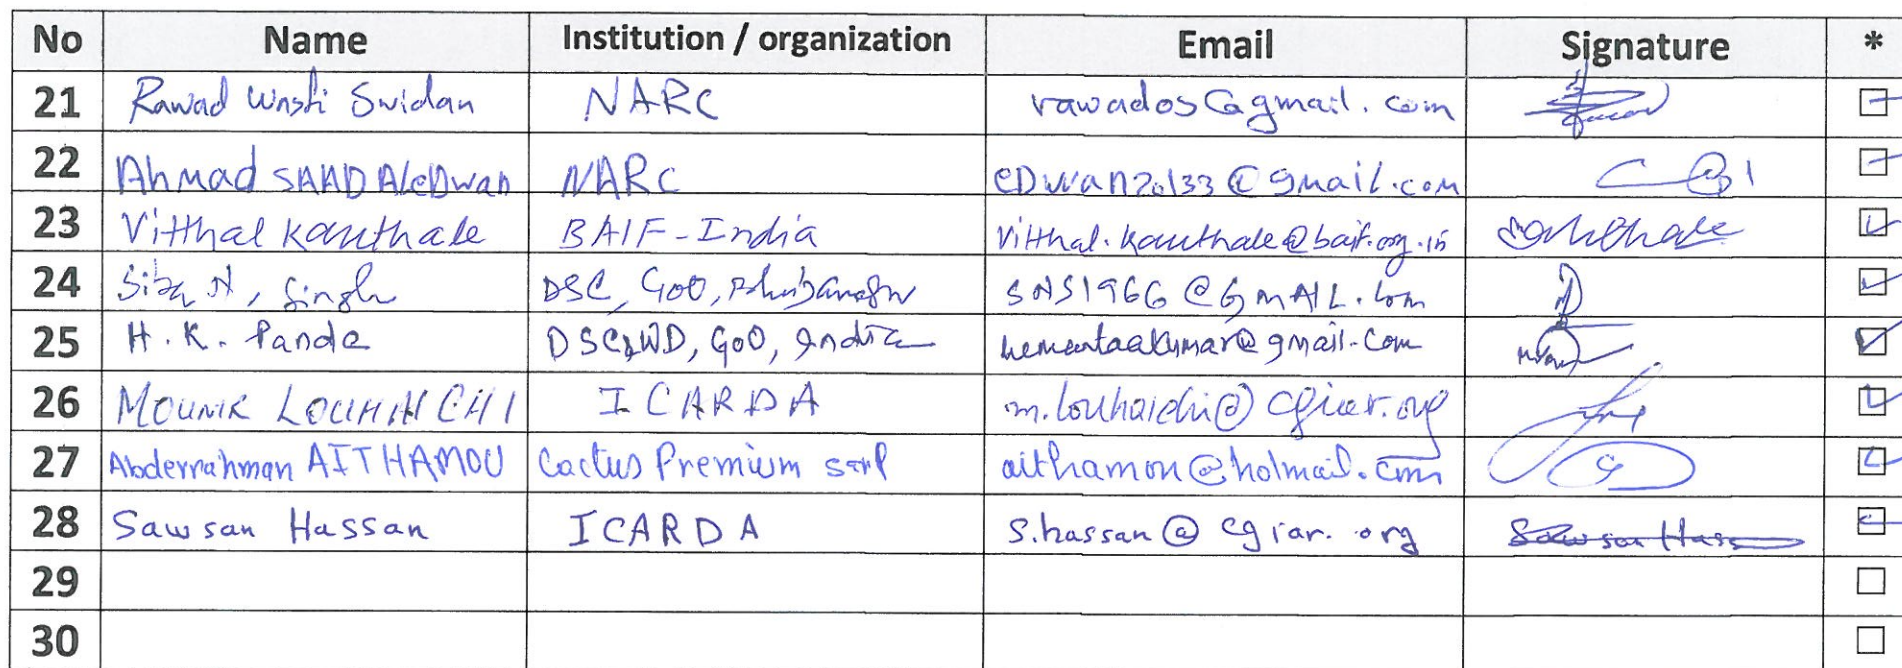 No Name Institution / organization Email Signature *
21 Rawad Wasfi Swidan NARC rawados@gmail.com
22 Ahmad SAAD ALeDwan NARC eDwan20133@gmail.com
23 Vitthal Kauthale BAIF-India Vitthal.kauthale@baif.org.in
24 N, Singh DSC, GOO, SNS1966@GMAIL.com
25 H.K. Panda DSC&WD, GoO, India hemantaakumar@gmail.com
26 MOUNIR LOUHAICHI ICARDA m.louhaichi@cgiar.org
27 Abderrahman AITHAMOU Cactus Premium sarl aithamou@hotmail.com
28 Sawsan Hassan ICARDA S.hassan@cgiar.org Sawsan Hass
29
30